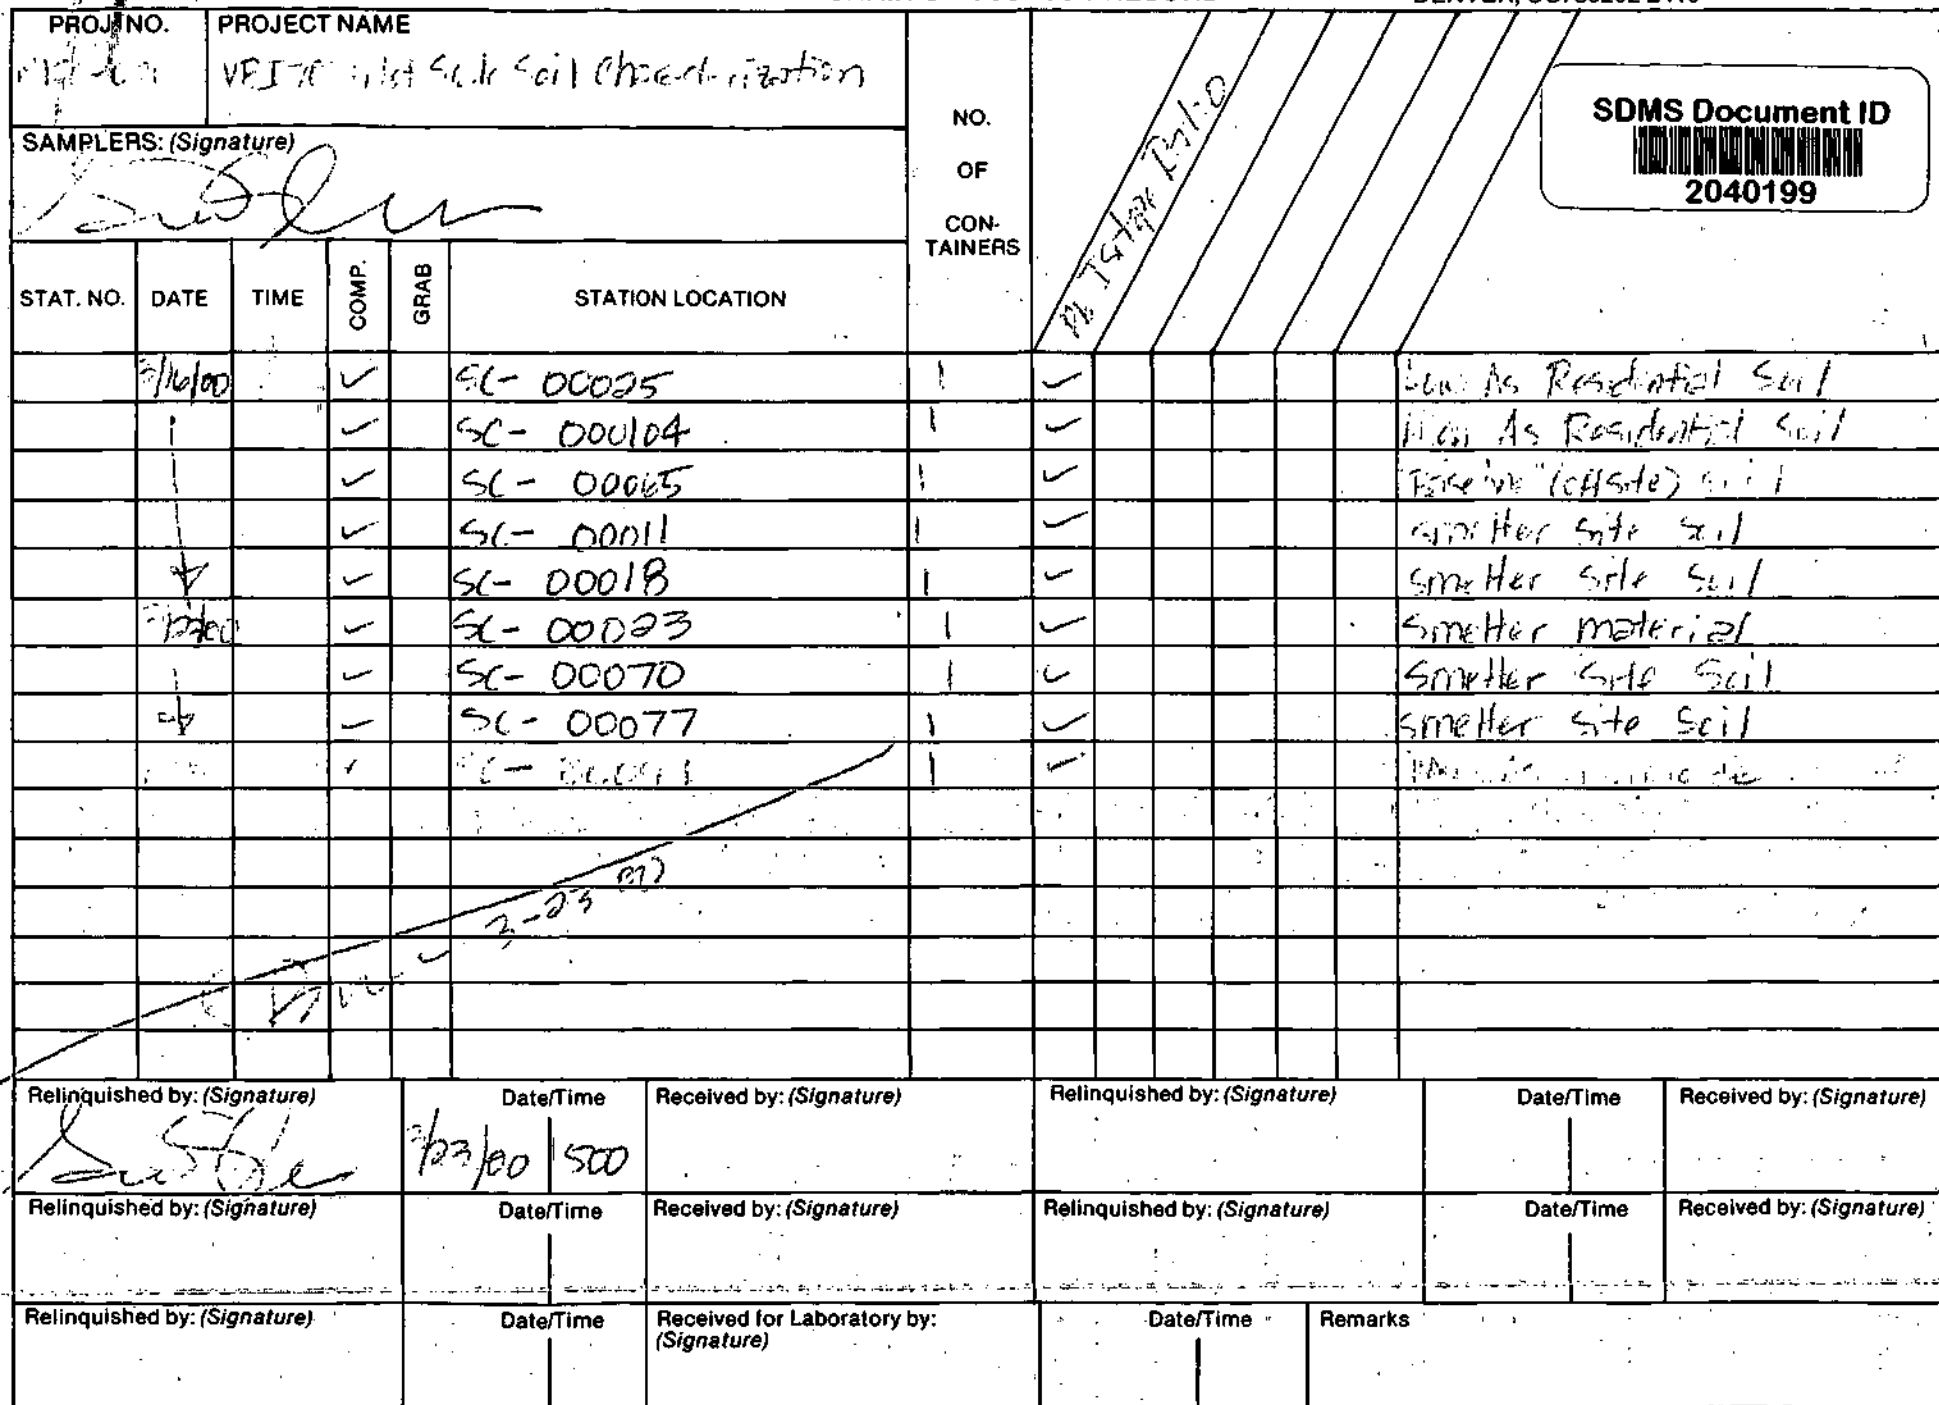 PROJ. NO. PROJECT NAME
Soil Characterization
SAMPLERS: (Signature)
NO. OF CON-TAINERS
Pb Isotope Ratio
SDMS Document ID
2040199
STAT. NO. DATE TIME COMP. GRAB STATION LOCATION
3/16/00 ✓ SC- 00025 1 ✓ Low As Residential Soil
✓ SC- 000104 1 ✓ As Residential Soil
✓ SC- 00065 1 ✓ (offsite) soil
✓ SC- 00011 1 ✓ smelter site soil
✓ SC- 00018 1 ✓ smelter site soil
✓ SC- 00023 1 ✓ smelter material
✓ SC- 00070 1 ✓ smelter site soil
✓ SC- 00077 1 ✓ smelter site soil
✓ 1 ✓
3-23
Relinquished by: (Signature) Date/Time Received by: (Signature) Relinquished by: (Signature) Date/Time Received by: (Signature)
3/23/00 1500
Relinquished by: (Signature) Date/Time Received by: (Signature) Relinquished by: (Signature) Date/Time Received by: (Signature)
Relinquished by: (Signature) Date/Time Received for Laboratory by: (Signature) Date/Time Remarks